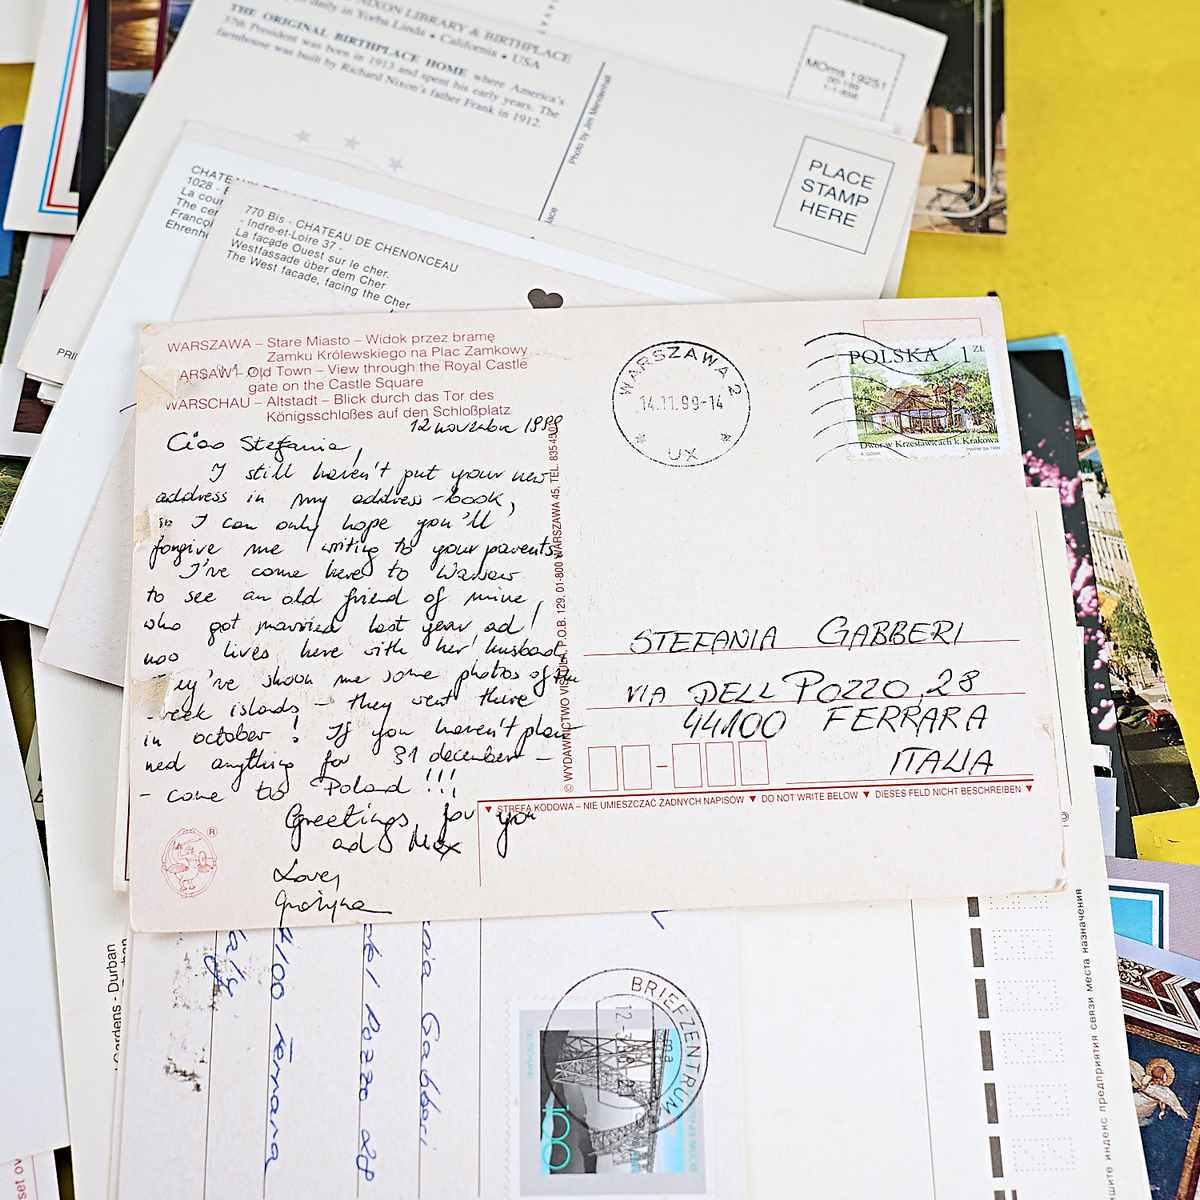 NIXON LIBRARY & BIRTHPLACE
daily in Yorba Linda • California • USA
THE ORIGINAL BIRTHPLACE HOME, where America's
37th President was born in 1913 and spent his early years. The
farmhouse was built by Richard Nixon's father Frank in 1912.
Photo by Jim Mendenhall
MOms 19251
PLACE
STAMP
HERE
1028 -
La cour
The cer
Ehrenh
770 Bis - CHATEAU DE CHENONCEAU
- Indre-et-Loire 37 -
La façade Ouest sur le cher.
Westfassade über dem Cher
The West facade, facing the Cher
WARSZAWA – Stare Miasto – Widok przez bramę
Zamku Królewskiego na Plac Zamkowy
ARSAW – Old Town – View through the Royal Castle
gate on the Castle Square
WARSCHAU – Altstadt – Blick durch das Tor des
Königsschloßes auf den Schloßplatz
12 novembre 1999
Ciao Stefania,
I still haven't put your new
address in my address-book,
so I can only hope you'll
forgive me writing to your parents.
I've come here to Warsaw
to see an old friend of mine,
who got married last year ad
noo lives here with her husband.
ey've shown me some photos of the
reek islands – they went there
in october! If you haven't plan
ned anything for 31 december –
- come to Poland!!!
Greetings for you
ad Max
Love,
Grażyna
© WYDAWNICTWO VISTULA, P.O.B. 129, 01-800 WARSZAWA 45, TEL.
WARSZAWA 2
14.11.99-14
UX
POLSKA 1 ZŁ
Dwór w Krzesławicach k. Krakowa
STEFANIA GABBERI
VIA DELL POZZO, 28
44100 FERRARA
ITALIA
▼ STREFA KODOWA – NIE UMIESZCZAĆ ŻADNYCH NAPISÓW ▼ DO NOT WRITE BELOW ▼ DIESES FELD NICHT BESCHREIBEN ▼
®
Gardens - Durban
nia Gabberi
del Pozzo 28
44100 Ferrara
aly
BRIEFZENTRUM
100
шите индекс предприятия связи места назначения